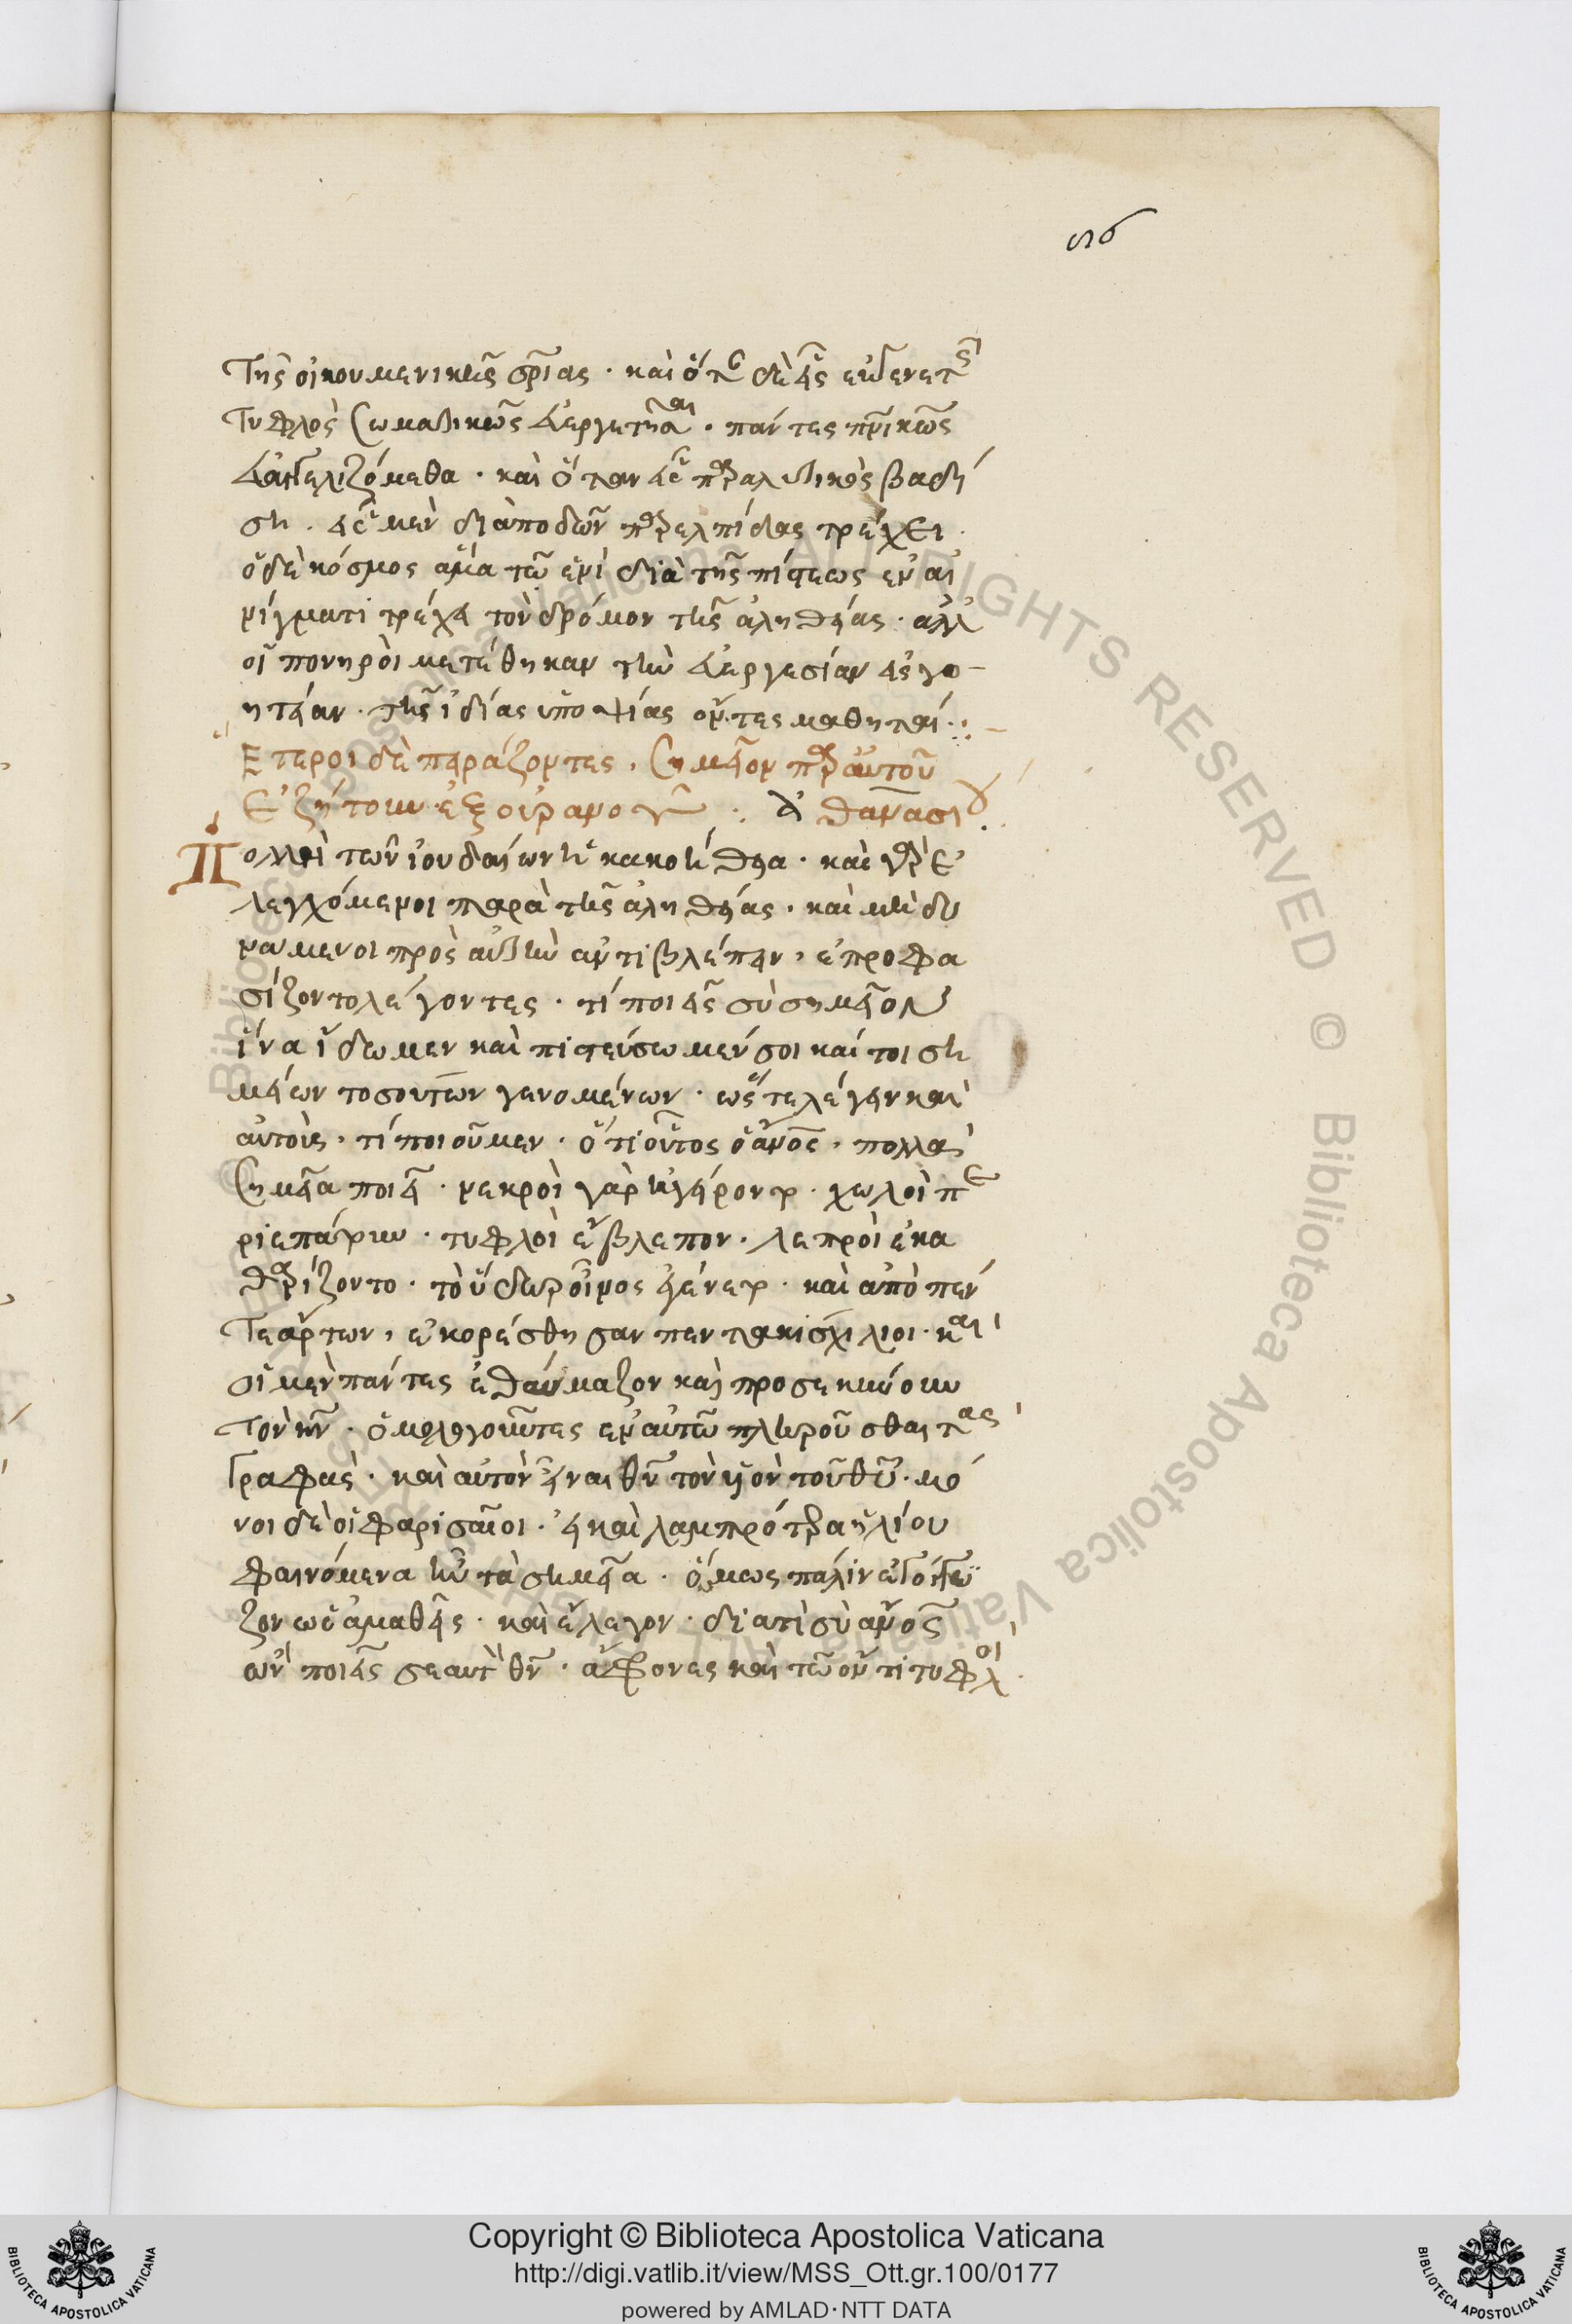 τῆς οἰκουμενικῆς σρίας · καὶ ὅτε δὲ εἷς ἐκ γενετῆς
τυφλὸς σωματικῶς εὐεργετῆται · πάντες πνικῶς
εὐαγγελιζόμεθα · καὶ ὅταν εἷς παραλυτικὸς βαδί
ση · εἷς μὲν διὰ ποδῶν παρ ἐλπίδας τρέχει ·
ὁ δὲ κόσμος ἅμα τῶ ἑνὶ διὰ τῆς πίστεως ἐν αἰ
νίγματι τρέχει τὸν δρόμον τῆς ἀληθείας · ἀλλ
οἱ πονηροὶ μετέθηκαν τὴν εὐεργεσίαν εἰς γο-
ητείαν · τῆς ἰδίας ὑποψίας ὄντες μαθηταί ·:-
Ἕτεροι δὲ πειράζοντες · σημεῖον παρ αὐτοῦ
ἐζήτουν ἐξ οὐρανοῦ :. ἀθανασίου
Πολλὴ τῶν ἰουδαίων ἡ κακοήθεια · καὶ γὰρ ἐ
λεγχόμενοι παρὰ τῆς ἀληθείας · καὶ μὴ δυ
νάμενοι πρὸς αὐτὴν ἀντιβλέπειν · ἐπροφα
σίζοντο λέγοντες · τί ποιεῖς σὺ σημεῖον
ἵνα ἴδωμεν καὶ πιστεύσωμέν σοι καί τοι ση
μείων τοσούτων γενομένων · ὥστε λέγειν καὶ
αὐτοὺς · τί ποιοῦμεν · ὅτι οὗτος ὁ ἄνος · πολλὰ
σημεῖα ποιεῖ · νεκροὶ γὰρ ἠγείροντο · χωλοὶ πε
ριεπάτουν · τυφλοὶ ἔβλεπον · λεπροὶ ἐκα
θαρίζοντο · τὸ ὕδωρ οἶνος ἐγένετο · καὶ ἀπὸ πέν
τε ἄρτων · ἐκορέσθησαν πεντακισχίλιοι · καὶ
οἱ μὲν πάντες ἐθαύμαζον καὶ προσεκύνουν
τὸν κν · ὁμολογοῦντες ἐν αὐτῶ πληροῦσθαι τὰς
γραφὰς · καὶ αὐτὸν εἶναι θν τὸν υἱὸν τοῦ θυ · μό
νοι δὲ οἱ φαρισαῖοι · εἰ καὶ λαμπρότερα ἡλίου
φαινόμενα ἦν τὰ σημεῖα · ὅμως πάλιν ἐγόγγυ
ζον ὡς ἀμαθεῖς · καὶ ἔλεγον · διατὶ σὺ ἄνος
ὢν ποιεῖς σεαυτὸν θν · ἄφρονες καὶ τῶ ὄντι τυφλοὶ